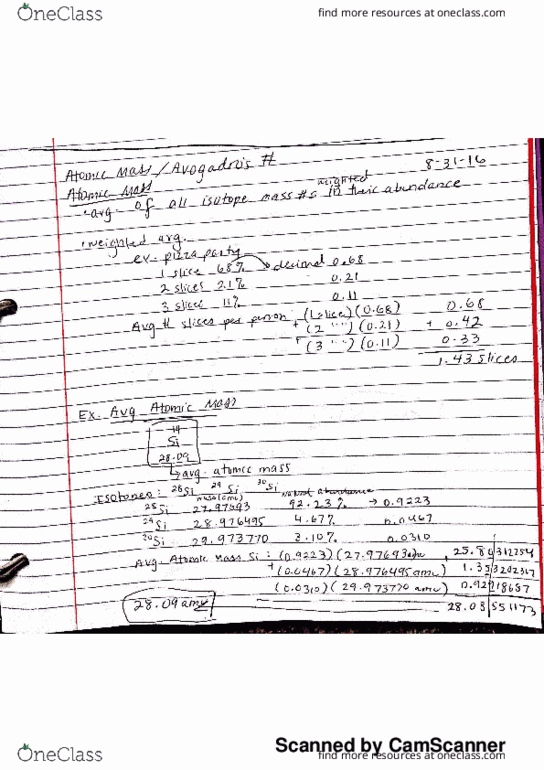 OneClass
find more resources at oneclass.com
Atomic Mass / Avogadro's #
8-31-16
Atomic Mass
· avg. of all isotope mass #s weighted in their abundance
· weighted avg.
ex. pizza party
1 slice 68% → decimal 0.68
2 slices 21% 0.21
3 slices 11% 0.11
Avg # slices per person = (1 slice)(0.68) 0.68
+ (2 " ")(0.21) + 0.42
+ (3 " ")(0.11) 0.33
1.43 slices
Ex. Avg Atomic Mass
14
Si
28.09
→ avg. atomic mass
Isotopes: 28Si 29Si 30Si
mass (amu) natural abundance
28Si 27.97693 92.23% → 0.9223
29Si 28.976495 4.67% 0.0467
30Si 29.973770 3.10% 0.0310
Avg. Atomic Mass Si: (0.9223)(27.97693 amu
+ (0.0467)(28.976495 amu)
(0.0310)(29.973770 amu)
28.09 amu
Scanned by CamScanner
OneClass
find more resources at oneclass.com